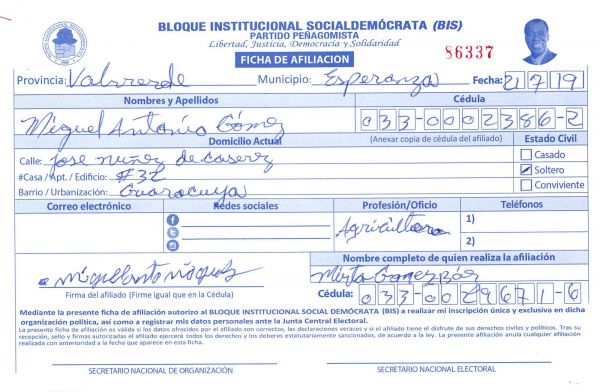 BLOQUE INSTITUCIONAL SOCIALDEMÓCRATA (BIS)
PARTIDO PEÑAGOMISTA
Libertad, Justicia, Democracia y Solidaridad
FICHA DE AFILIACION
86337
Provincia: Valverde Municipio: Esperanza Fecha: 21 7 19
Nombres y Apellidos Cédula
Miguel Antonio Gómez 033-0002386-2
Domicilio Actual (Anexar copia de cédula del afiliado) Estado Civil
Calle: Jose Nuñez de Caserez Casado
#Casa / Apt. / Edificio: #32 Soltero
Barrio / Urbanización: Guaracuya Conviviente
Correo electrónico Redes sociales Profesión/Oficio Teléfonos
Agricultura 1)
2)
Nombre completo de quien realiza la afiliación
Firma del afiliado (Firme igual que en la Cédula)
Cédula: 033-0029671-6
Mediante la presente ficha de afiliación autorizo al BLOQUE INSTITUCIONAL SOCIAL DEMÓCRATA (BIS) a realizar mi inscripción única y exclusiva en dicha
organización política, así como a registrar mis datos personales ante la Junta Central Electoral.
La presente ficha de afiliación es válida si los datos ofrecidos por el afiliado son correctos, las declaraciones veraces y si el afiliado tiene el disfrute de sus derechos civiles y políticos. Tras su
recepción, sello y firmas autorizadas el afiliado ejercerá todos los derechos y los deberes estatutariamente sancionados, de acuerdo a la ley. La presente afiliación anula cualquier afiliación
realizada con anterioridad a la fecha que aparece en esta ficha.
SECRETARIO NACIONAL DE ORGANIZACIÓN SECRETARIO NACIONAL ELECTORAL